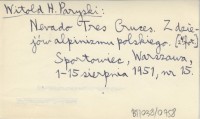 Witold H. Paryski:
Nevado Tres Cruces. Z dzie-
jów alpinizmu polskiego.
Sportowiec, Warszawa,
1-15 sierpnia 1951, nr 15.